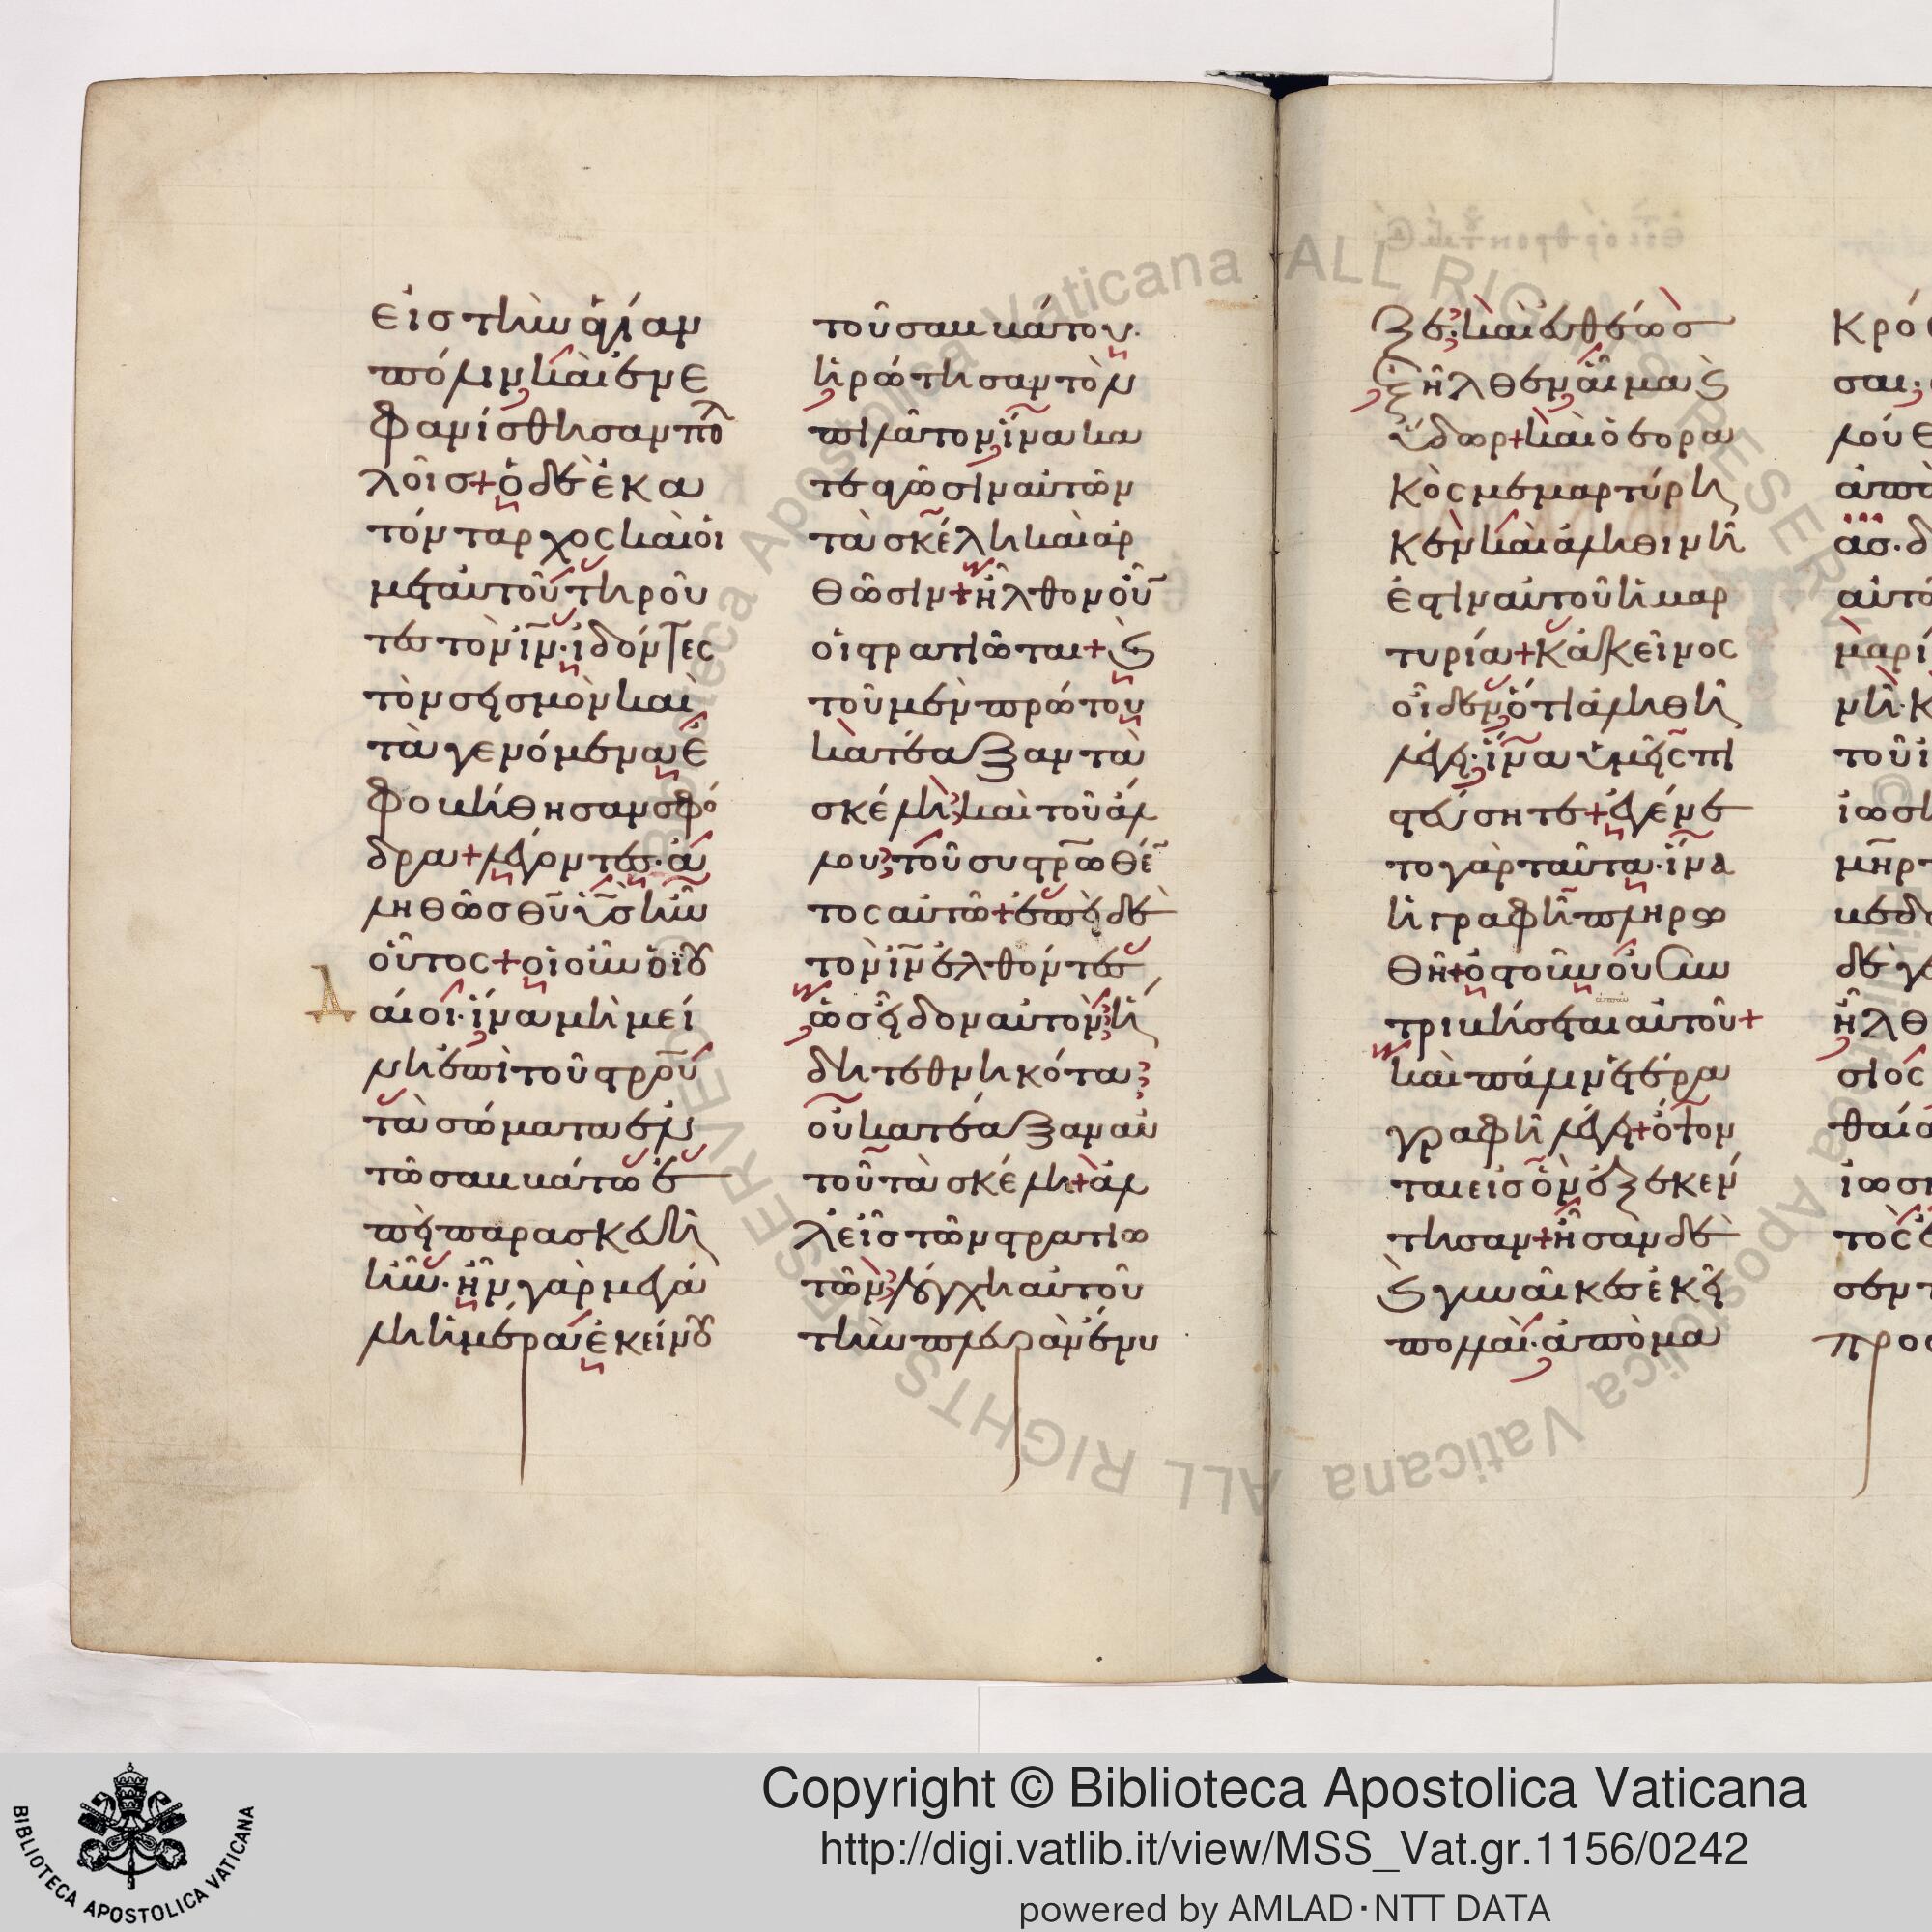 εἰς τὴν ἁγίαν
πόλιν καὶ ἐνε
φανίσθησαν πολ
λοῖς + ὁ δὲ ἑκα
τόνταρχος καὶ οἱ
μετ αὐτοῦ τηροῦν
τες τὸν ἰν· ἰδόντες
τὸν σεισμὸν καὶ
τὰ γενόμενα ἐ
φοβήθησαν σφό
δρα + λέγοντες· ἀ
ληθῶς θυ υἱς ἦν
οὗτος + οἱ οὖν ἰουδ
αίοι· ἵνα μὴ μεί
νη ἐπὶ τοῦ στρου
τὰ σώματα ἐν
τῶ σαββάτω ἐ
πεὶ παρασκευὴ
ἦν· ἦν γὰρ μεγά
λη ἡμέρα ἐκείνου
τοῦ σαββάτου·
ἠρώτησαν τὸν
πιλᾶτον ἵνα κα
τεαγῶσιν αὐτῶν
τὰ σκέλη καὶ ἀρ
θῶσιν + ἦλθον οὖν
οἱ στρατιῶται + καὶ
τοῦ μὲν πρώτου
κατέαξαν τὰ
σκέλη καὶ τοῦ ἄλ
λου τοῦ συστρωθέν
τος αὐτῶ + ἐπὶ δὲ
τὸν ἰν ἐλθόντες
ὡς εἶδον αὐτὸν ἤ
δη τεθνηκότα
οὐ κατέαξαν αὐ
τοῦ τὰ σκέλη + ἀλ
λ εἷς τῶν στρατιω
τῶν λόγχη αὐτοῦ
τὴν πλευρὰν ἔνυ
ξε· καὶ εὐθέως
ἐξῆλθεν αἷμα καὶ
ὕδωρ + καὶ ὁ ἑορα
κὸς μεμαρτύρη
κεν καὶ ἀληθινὴ
ἐστιν αὐτοῦ ἡ μαρ
τυρία + κἀκεῖνος
οἶδεν ὅτι ἀληθῆ
λέγει· ἵνα ὑμεῖς πι
στεύσητε + ἐγένε
το γὰρ ταῦτα· ἵνα
ἡ γραφὴ πληρω
θῆ + ὀστοῦν οὐ συν
τριβήσεται αὐτοῦ +
καὶ πάλιν ἑτέρα
γραφὴ λέγει + ὄψον
ται εἰς ὃν ἐξεκέν
τησαν + ἦσαν δὲ
καὶ γυναῖκες ἐκεῖ
πολλαὶ· ἀπὸ μα
κρό
σαι·
λού
ἀπὸ
ας· δ
αὐτο
μαρί
νὴ· κ
τοῦ ἰ
ἰωσὴ
μηρ τ
βεδ
δὲ γ
ἦλθ
σιος
θαία
ἰωσὴ
τὸς
σεν
προσ
Copyright © Biblioteca Apostolica Vaticana
http://digi.vatlib.it/view/MSS_Vat.gr.1156/0242
powered by AMLAD·NTT DATA
BIBLIOTECA APOSTOLICA VATICANA